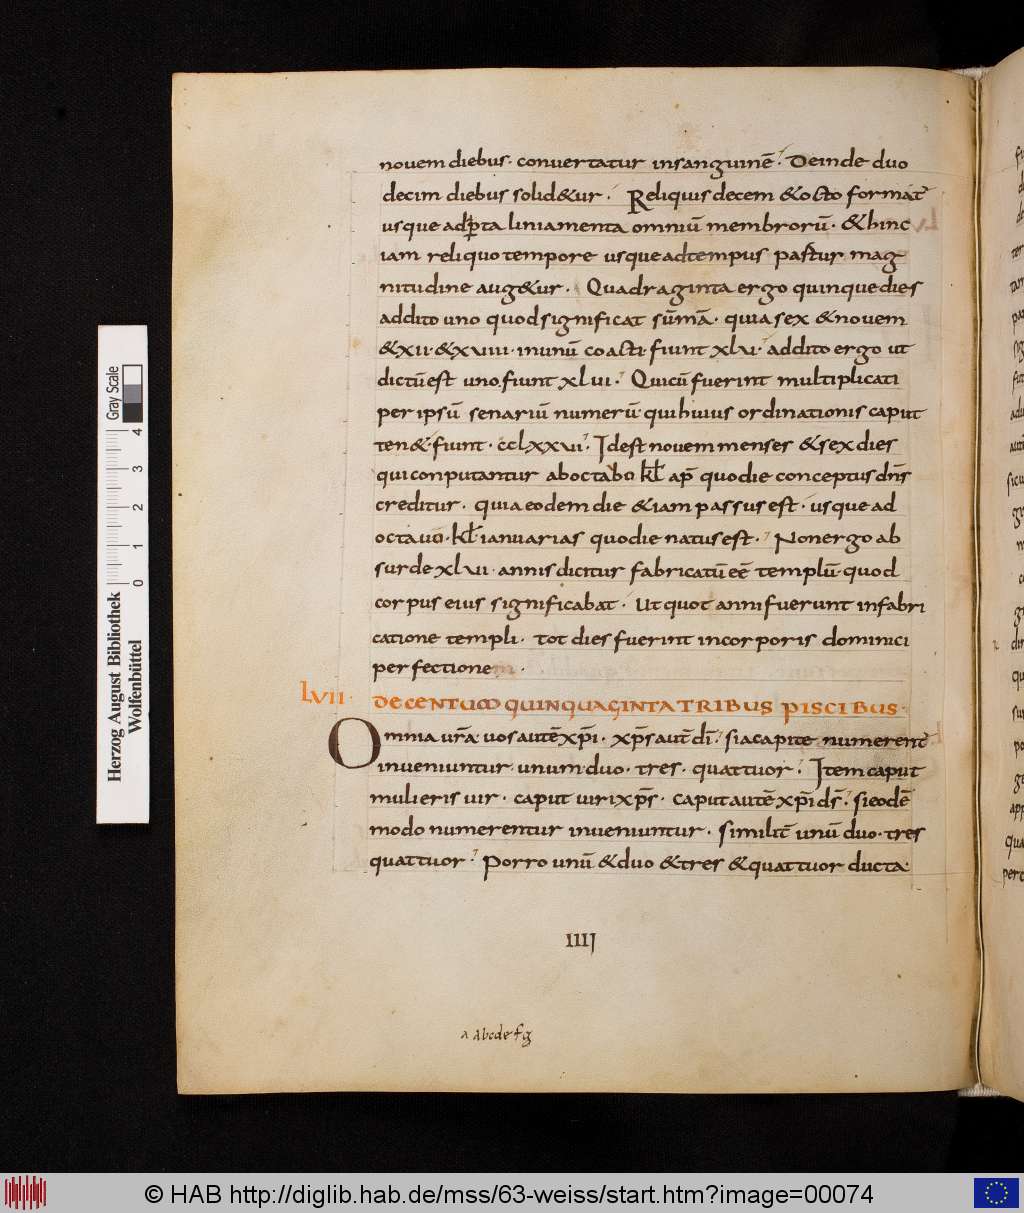 nouem diebus· conuertatur insanguinē· Deinde duo
decim diebus solid&ur· Reliquis decem &octo format̄
usque adp̄ta liniamenta omniū membrorū· &hinc
iam reliquo tempore usque adtempus partur mag
nitudine aug&ur· Quadraginta ergo quinque dies
addito uno quod significat sūmā· quia sex &nouem
&xii· &xuiii· inunū coacti fiunt xlu· addito ergo ut
dictū est uno fiunt xlui· Qui cū fuerint multiplicati
per ipsū senariū numerū qui huius ordinationis caput
ten&· fiunt· cclxxui· Idest nouem menses &sex dies
qui conputantur aboctabo kł ap̄ quodie conceptus dn̄s
creditur· quia eodem die &iam passus est· usque ad
octauū· kł ianuarias quodie natus est· Non ergo ab
surde xlui· annis dicitur fabricatū eē templū quod
corpus eius significabat· Ut quot anni fuerunt infabri
catione templi· tot dies fuerint incorporis dominici
perfectionem·
LVII· DE CENTUM QUINQUAGINTA TRIBUS PISCIBUS·
Omnia ur̄a uos autē xp̄i· xp̄s aut̄ dī· si acapite numerent̄
inueniuntur· unum· duo· tres· quattuor· Item caput
mulieris uir· caput uiri xp̄s· caput autē xp̄i ds̄· si eodē
modo numerentur inueniuntur· similit̄ unū duo· tres
quattuor· Porro unū &duo &tres &quattuor ducta·
IIIJ
a Abcdefg
Herzog August Bibliothek
Wolfenbüttel
0 1 2 3 4
Gray Scale
© HAB http://diglib.hab.de/mss/63-weiss/start.htm?image=00074